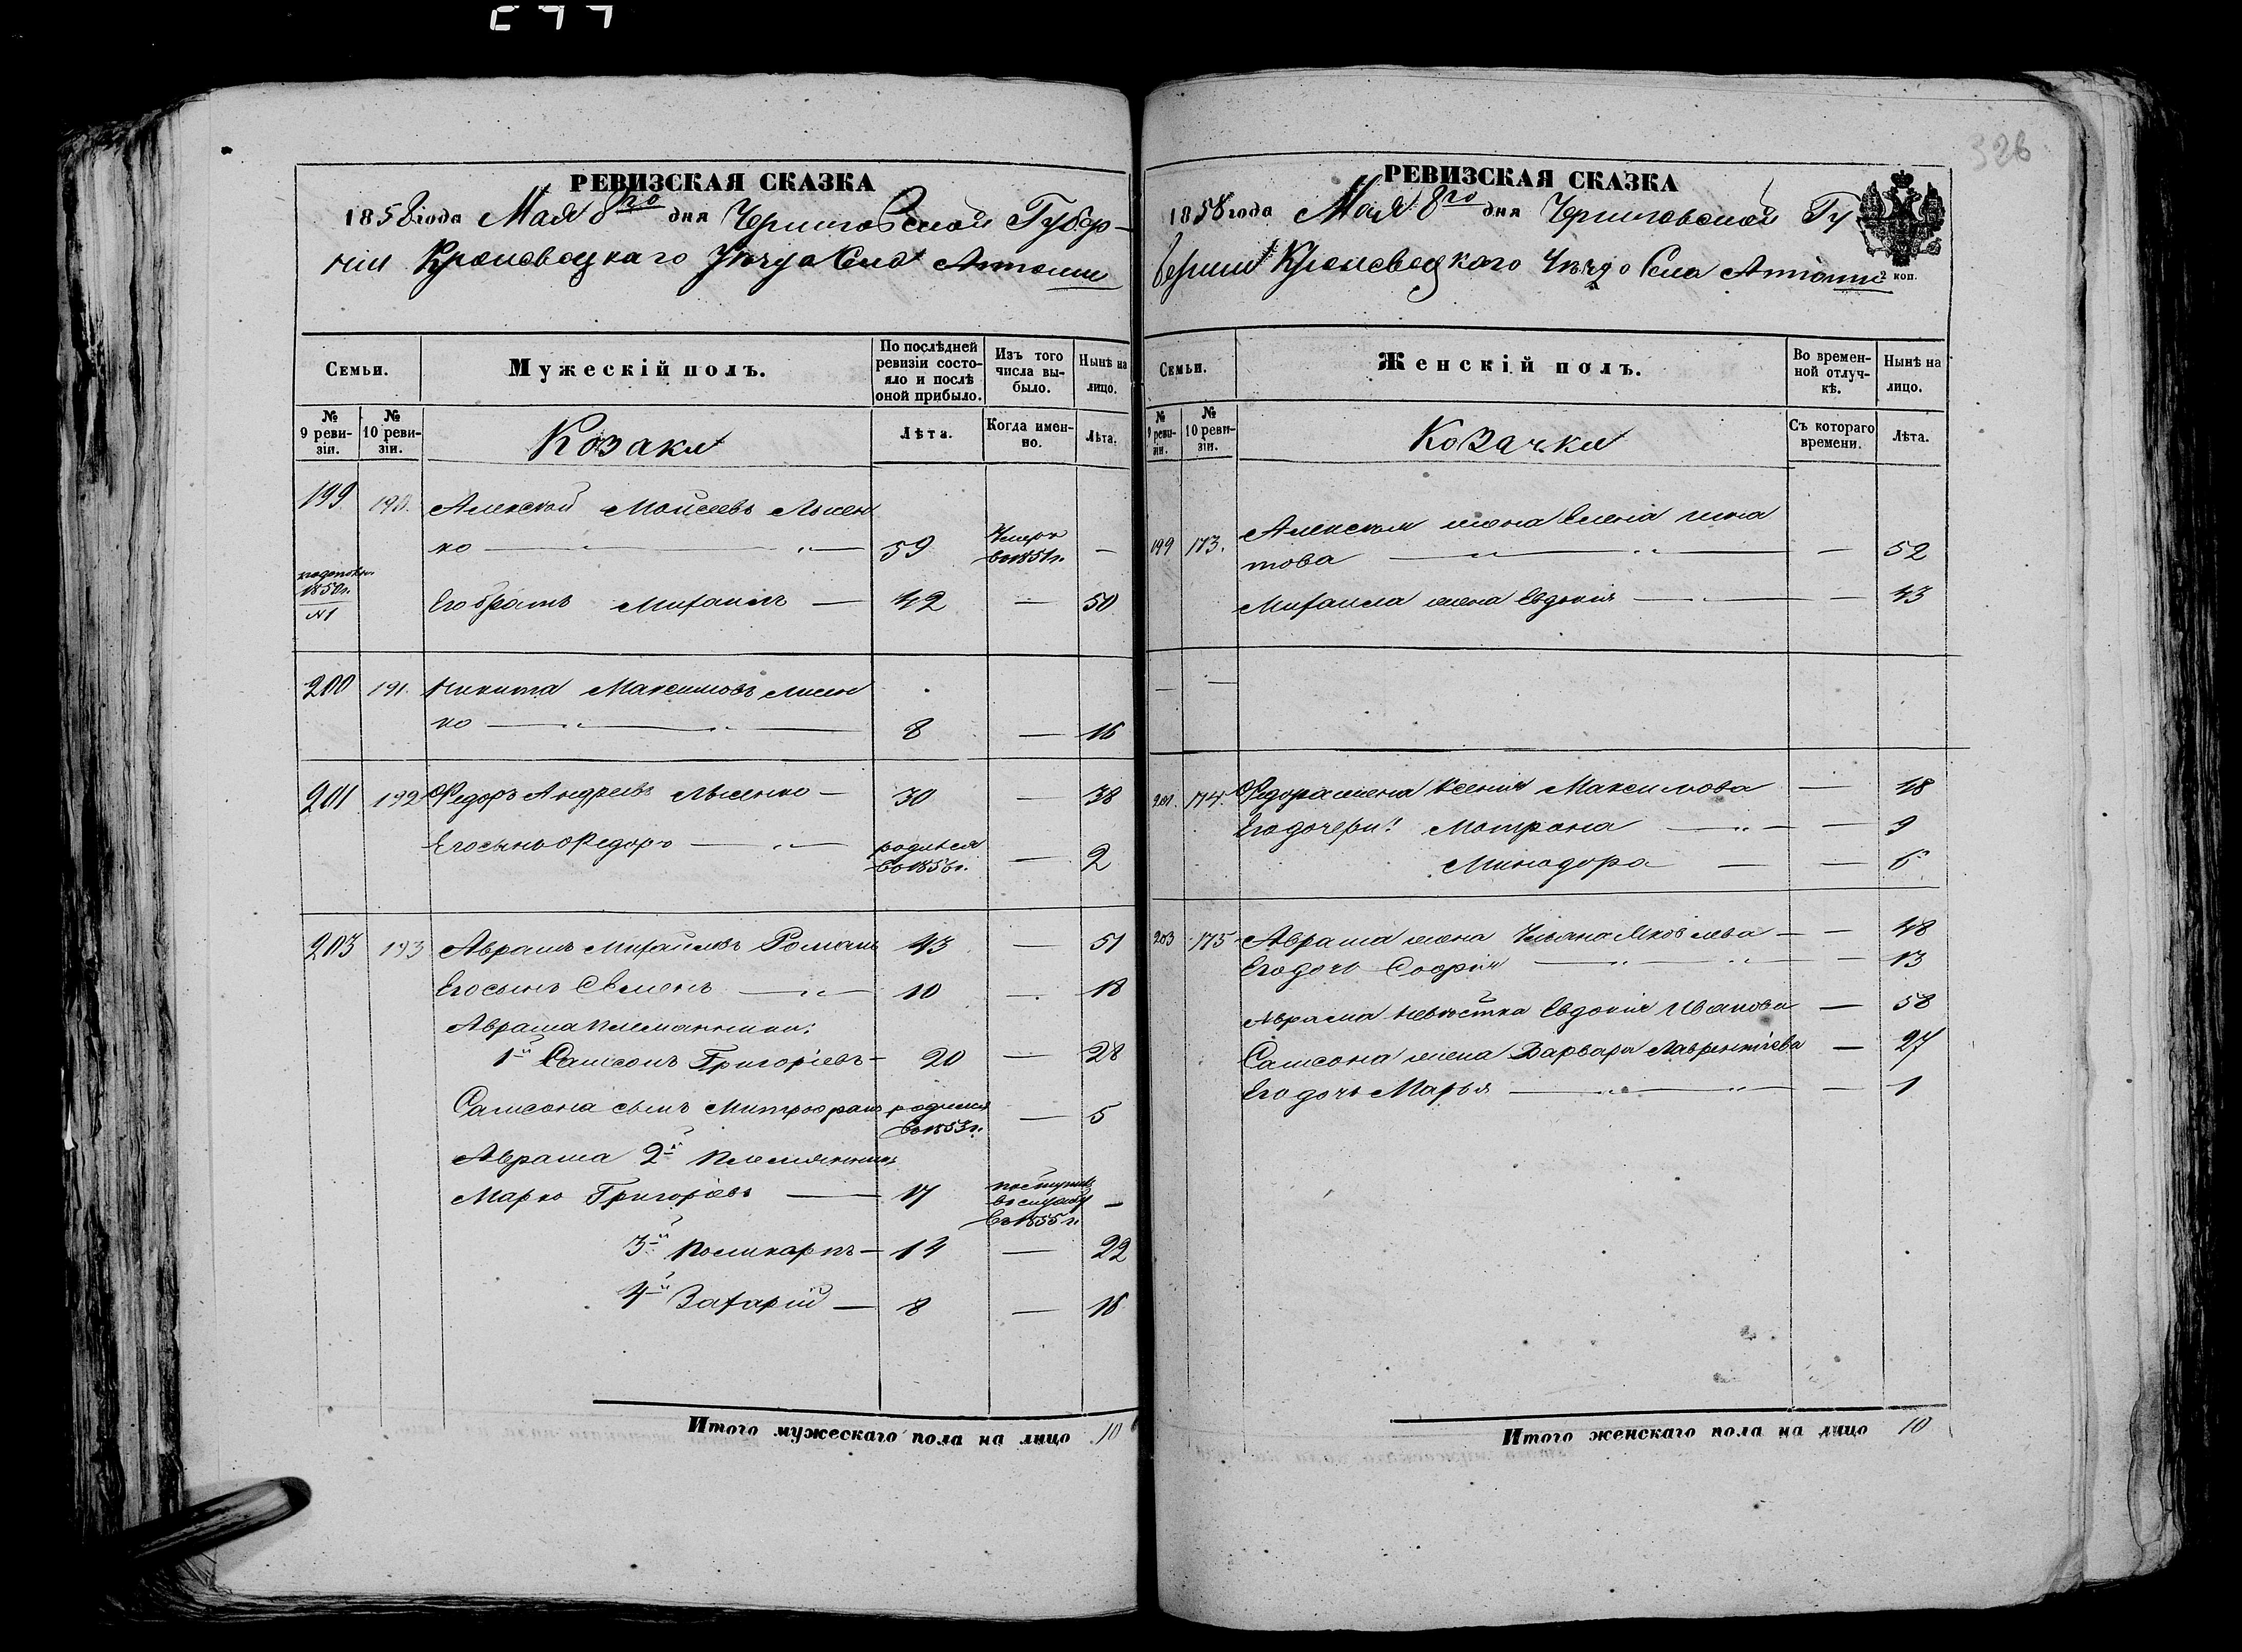 326
РЕВИЗСКАЯ СКАЗКА
1858 года Мая 8го дня Черниговской Губер-
ніи Кролевецкаго Уѣзда Села
Семьи.
Мужескій полъ.
По послѣдней ревизіи состо-
яло и послѣ оной прибыло.
Изъ того числа вы-
было.
Нынѣ на лицо.
№ 9 реви-
зіи.
№ 10 реви-
зіи.
Козаки
Лѣта.
Когда имен-
но.
Лѣта.
199 190. Алексѣй Моисеевъ Лысен
ко 59 Умеръ въ 1851 г. —
1850 г.
№1
Его братъ Михаилъ — 42 — 50
200 191. Никита Максимовъ Лисен
ко 8 — 16
201 192 Федоръ Андреевъ Лысенко — 30 — 38
Его сынъ Федоръ родился въ 1856 г. — 2
203 193 Аврамъ Михайловъ Романъ 43 — 51
Его сынъ Семенъ 10 — 18
Аврама племянники:
1й Самсонъ Григорьевъ — 20 — 28
Самсона сынъ Митрофанъ родился въ 1853 г. — 5
Аврама 2й племянникъ
Марко Григорьевъ — 17 поступилъ въ службу въ 1855 г. —
3й Поликарпъ — 14 — 22
4й Захарій — 8 — 16
Итого мужескаго пола на лицо 10
РЕВИЗСКАЯ СКАЗКА
1858 года Мая 8го дня Черниговской Гу
берніи Кролевецкого Уѣзда Села
2 коп.
Семьи.
Женскій полъ.
Во времен-
ной отлуч-
кѣ.
Нынѣ на лицо.
№ 9 реви-
зіи.
№ 10 реви-
зіи.
Козачки
Съ котораго времени.
Лѣта.
199 173. Алексѣя жена Елена
това — 52
Михаила жена Евдокія — 43
— —
201. 174. Федора жена Ксенія Максимова — 48
Его дочери: Мотрона — 9
Минодора — — 6
203 175 Аврама жена Ульяна Яковлева — — 48
Его дочь Софія — 13
Аврама невѣстка Евдокія Иванова — 58
Самсона жена Варвара Лаврентіева — 27
Его дочь Марья — 1
Итого женскаго пола на лицо 10